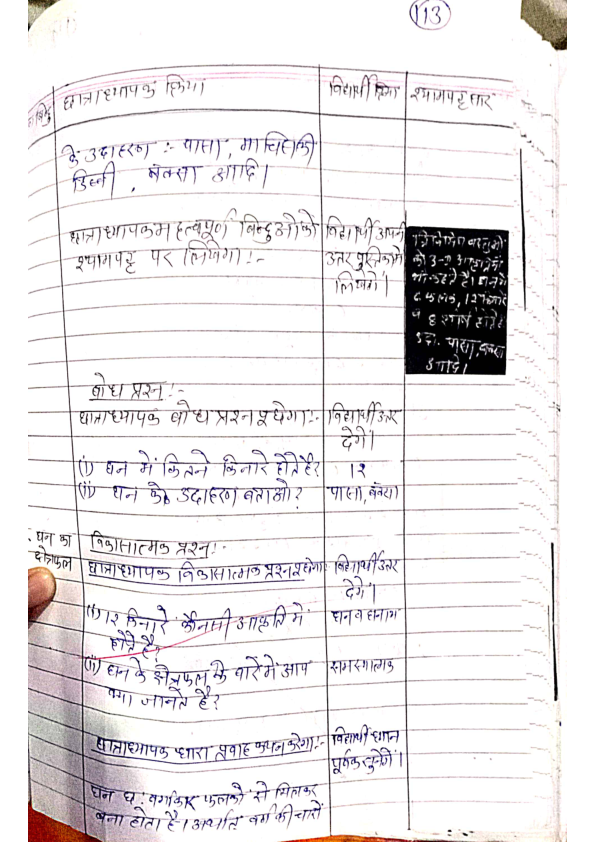 113
छात्राध्यापक क्रिया
विद्यार्थी क्रिया
श्यामपट्ट सार
के उदाहरण :- पासा, माचिस की
डिब्बी, बक्सा आदि।
छात्राध्यापक महत्वपूर्ण बिन्दुओं को
श्यामपट्ट पर लिखेगा :-
विद्यार्थी अपनी
उत्तर पुस्तिका में
लिखेंगे।
को 3-D आकृति
भी कहते है।
6 फलक, 12 किनारे
व 8 शीर्ष होते है
उदा. पासा, बक्सा
आदि।
बोध प्रश्न :-
छात्राध्यापक बोध प्रश्न पूछेगा :-
विद्यार्थी उत्तर
देगें।
(i) घन में कितने किनारे होते है?
१२
(ii) घन के उदाहरण बताओ?
पासा, बक्सा
घन का
क्षेत्रफल
विकासात्मक प्रश्न :-
छात्राध्यापक विकासात्मक प्रश्न पूछेगा
विद्यार्थी उत्तर
देगें।
(i) १२ किनारे कौनसी आकृति में
होते है?
घन व घनाभ
(ii) घन के क्षेत्रफल के बारे में आप
क्या जानते है?
समस्यात्मक
छात्राध्यापक धारा प्रवाह कथन करेगा :-
विद्यार्थी ध्यान
पूर्वक सुनेगें।
घन छ: वर्गाकार फलकों से मिलकर
बना होता है। अर्थात वर्ग की चारों